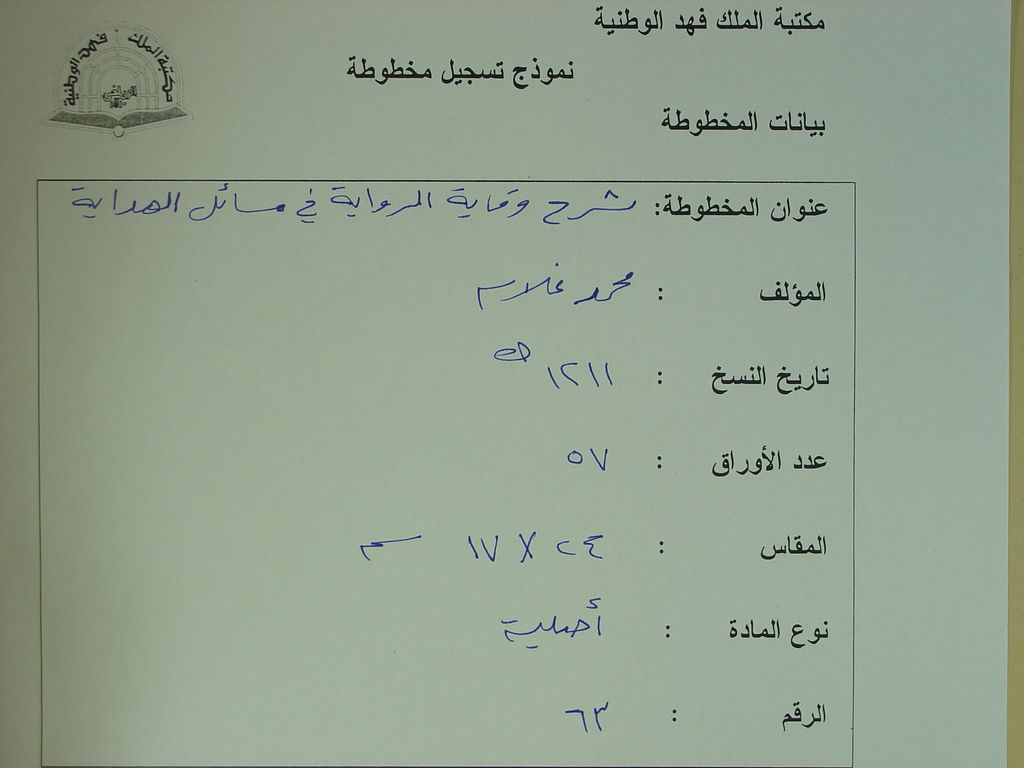 مكتبة الملك فهد الوطنية
نموذج تسجيل مخطوطة
مكتبة الملك فهد الوطنية
الرياض
بيانات المخطوطة
عنوان المخطوطة: شرح وقاية الرواية في مسائل الهداية
المؤلف : محمد غلام
تاريخ النسخ : ١٢١١ هـ
عدد الأوراق : ٥٧
المقاس : ٢٤ X ١٧ سم
نوع المادة : أصلية
الرقم : ٦٣